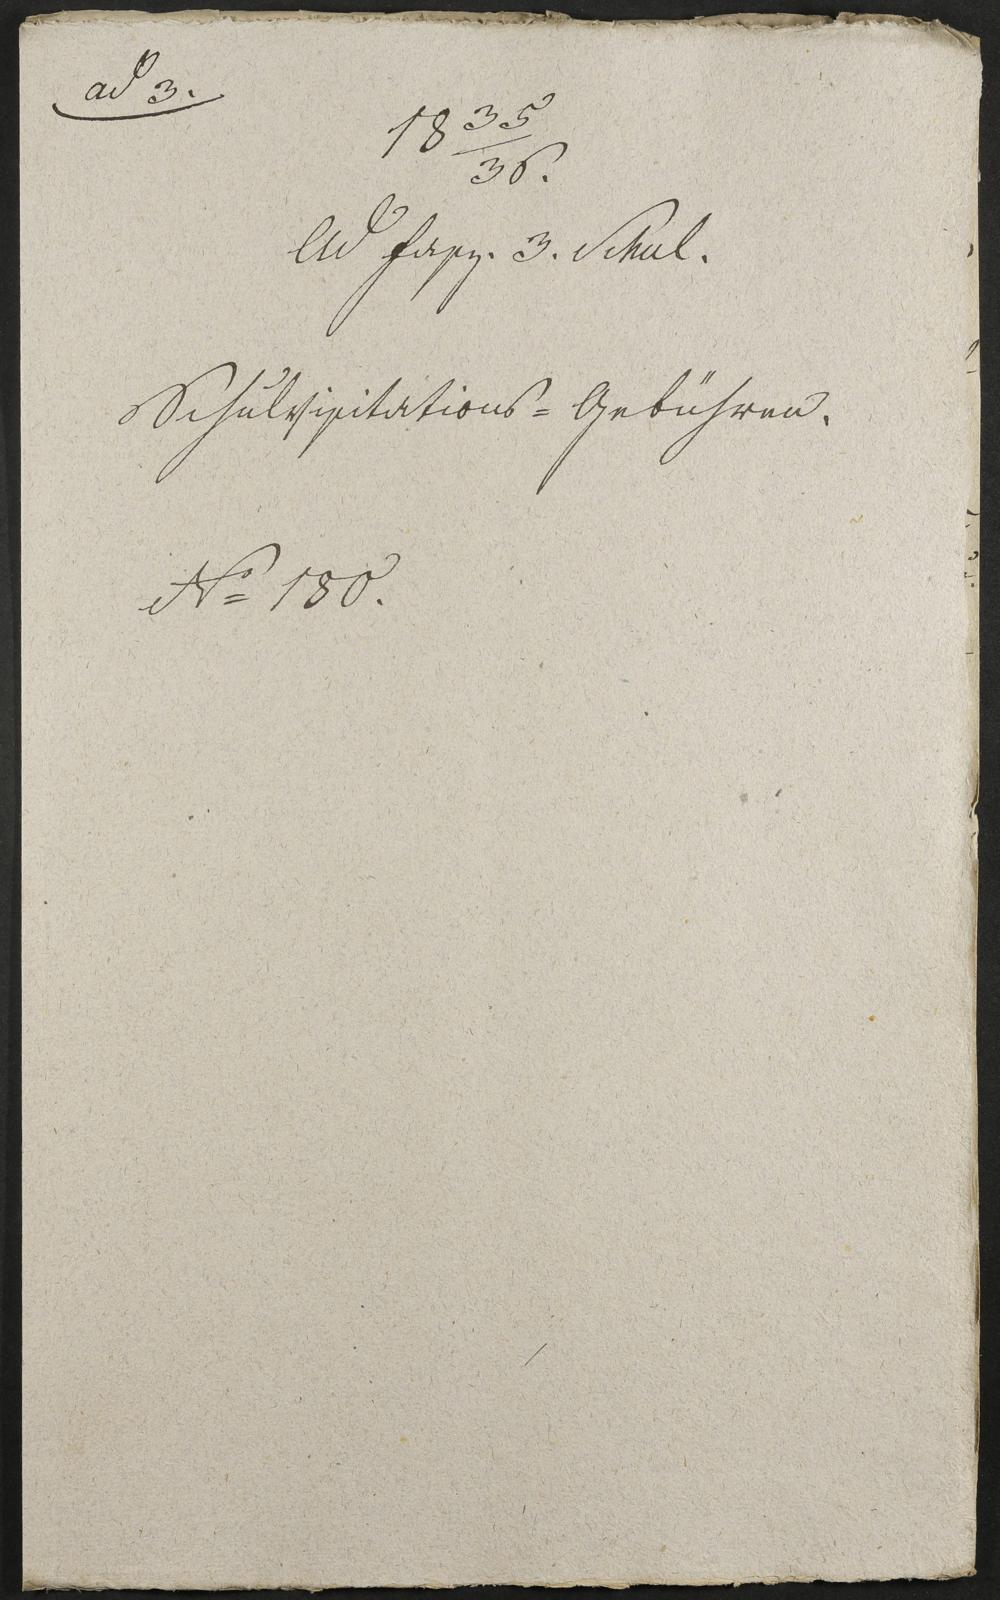 ad 3.
18 35/36.
Ad fasz. 3. Schul.
Schulvisitations= Gebühren.
No 180.